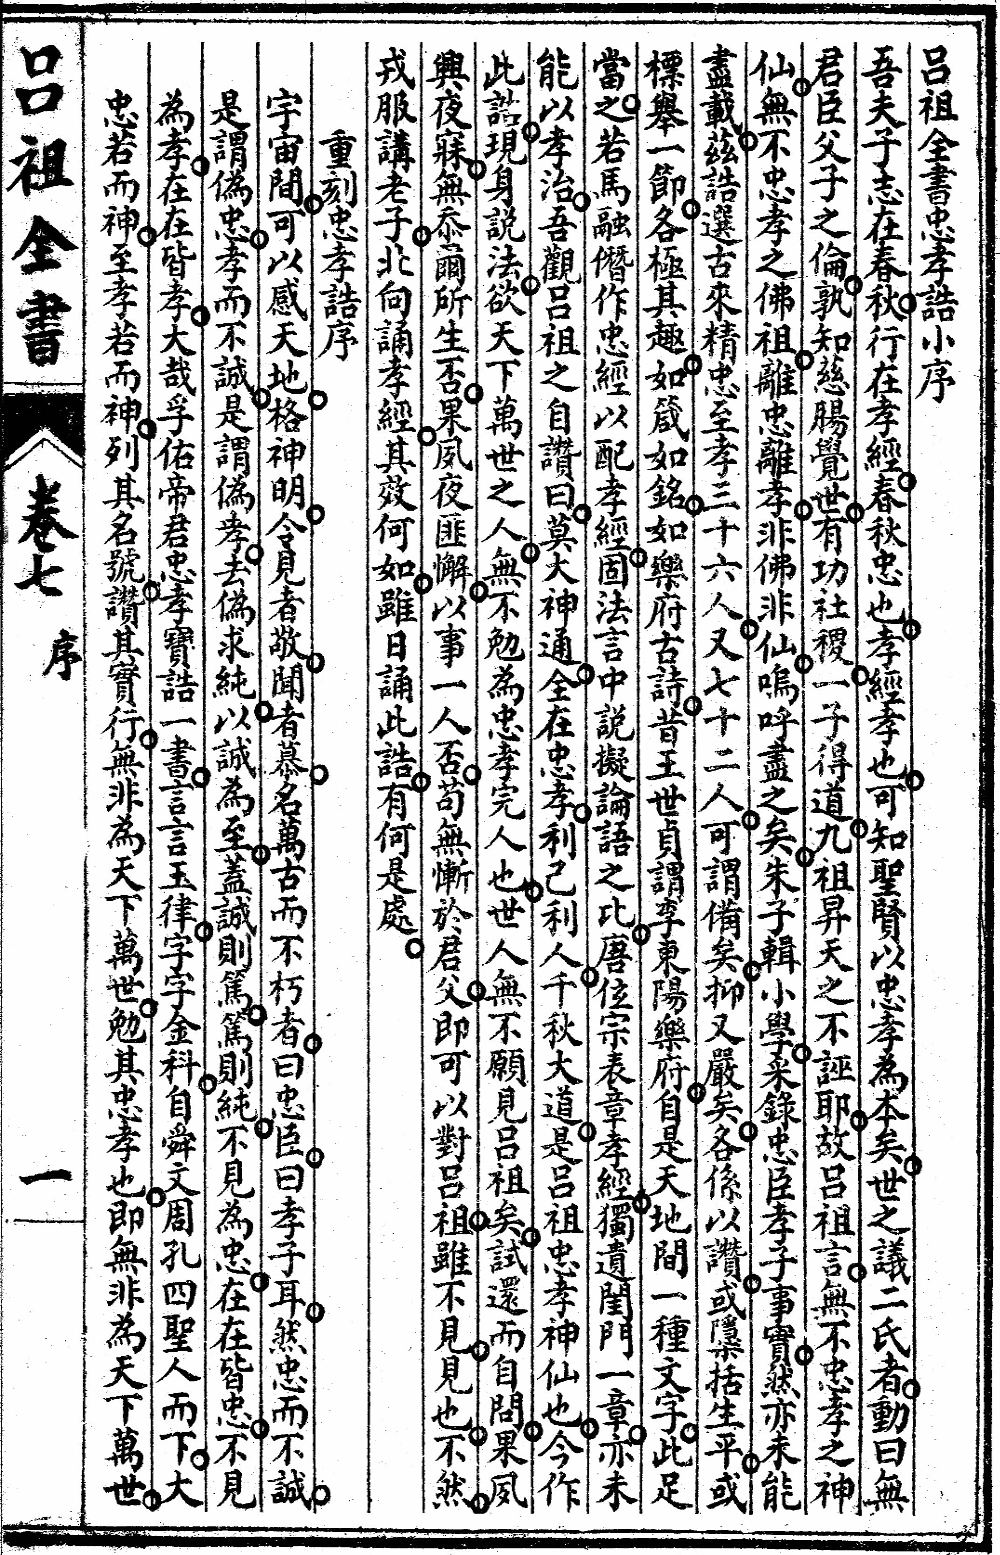 呂祖全書忠孝誥小序
吾夫子志在春秋行在孝經春秋忠也孝經孝也可知聖賢以忠孝為本矣世之議二氏者動曰無
君臣父子之倫孰知慈腸覺世有功社稷一子得道九祖昇天之不誣耶故呂祖言無不忠孝之神
仙無不忠孝之佛祖離忠離孝非佛非仙嗚呼盡之矣朱子輯小學采錄忠臣孝子事實然亦未能
盡載茲誥選古來精忠至孝三十六人又七十二人可謂備矣抑又嚴矣各係以讚或隱括生平或
標舉一節各極其趣如箴如銘如樂府古詩昔王世貞謂李東陽樂府自是天地間一種文字此足
當之若馬融僭作忠經以配孝經固法言中說擬論語之比唐位宗表章孝經獨遺閨門一章亦未
能以孝治吾觀呂祖之自讚曰莫大神通全在忠孝利己利人千秋大道是呂祖忠孝神仙也今作
此誥現身說法欲天下萬世之人無不勉為忠孝完人也世人無不願見呂祖矣試還而自問果夙
興夜寐無忝爾所生否果夙夜匪懈以事一人否苟無慚於君父即可以對呂祖雖不見見也不然
戎服講老子北向誦孝經其效何如雖日誦此誥有何是處
重刻忠孝誥序
宇宙間可以感天地格神明令見者敬聞者慕名萬古而不朽者曰忠臣曰孝子耳然忠而不誠
是謂偽忠孝而不誠是謂偽孝去偽求純以誠為至蓋誠則篤篤則純不見為忠在在皆忠不見
為孝在在皆孝大哉孚佑帝君忠孝寶誥一書言言玉律字字金科自舜文周孔四聖人而下大
忠若而神至孝若而神列其名號讚其實行無非為天下萬世勉其忠孝也即無非為天下萬世
呂祖全書
卷七
序
一